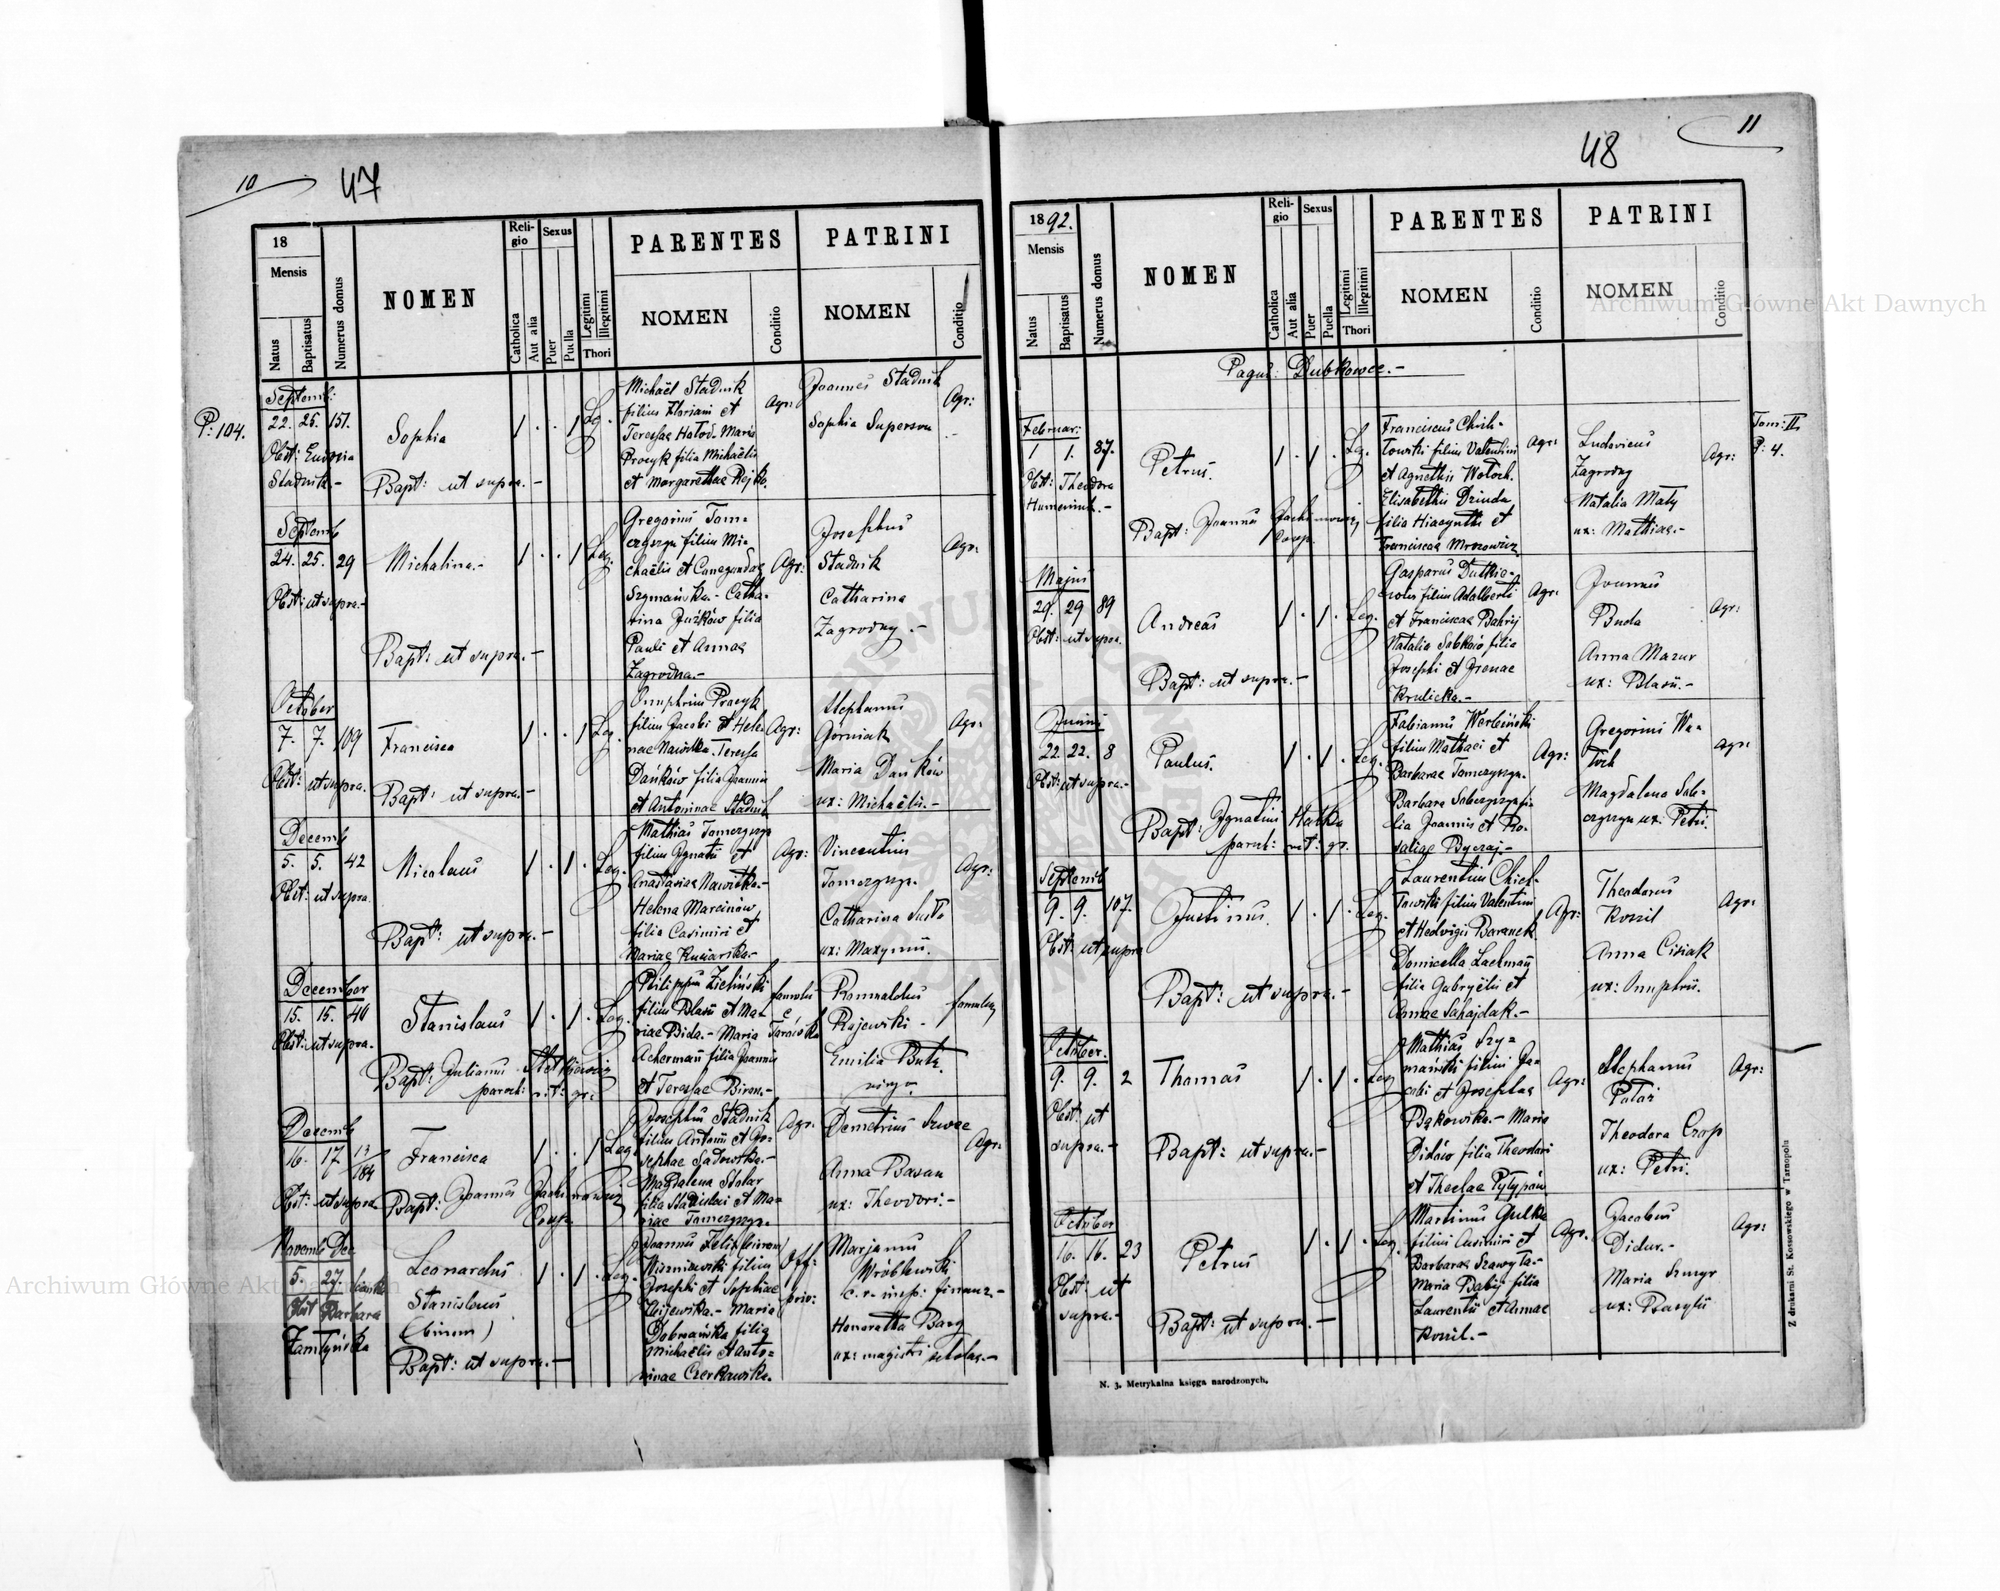 10
47
18
Mensis
Natus
Baptisatus
Numerus domus
NOMEN
Religio
Catholica
Aut alia
Sexus
Puer
Puella
Legitimi
Illegitimi
Thori
PARENTES
NOMEN
Conditio
PATRINI
NOMEN
Conditio
P: 104.
Septemb:
22. 25. 151.
Obst: Eudoxia
Stadnik -
Sophia
Bapt: ut supra. -
1 . . 1 Leg.
Michaël Stadnik
filius Floriani et
Teressae Hołod. Maria
Procyk filia Michaëlis
et Margarethae Rejko.
Agr:
Joannes Stadnik
Sophia Superson
Agr:
Septemb
24. 25. 29
Obst: ut supra. -
Michalina. -
Bapt: ut supra. -
1 . . 1 Leg.
Gregorius Tom=
czyszyn filius Mi=
chaëlis et Cunegundae
Szymańska. - Catha=
rina
filia
Pauli et Annae
Zagrodna. -
Agr:
Josephus
Stadnik
Catharina
Zagrodny. -
Agr:
October
7. 7. 109
Obst: ut supra.
Francisca
Bapt: ut supra. -
1 . . 1 Leg.
Onuphrius Procyk
filius Jacobi et Hele=
nae Nawitka. Teressa
Dańków filia Joannis
et Antoninae Stadnik
Agr:
Stephanus
Górniak
Maria Dańków
ux: Michaëlis. -
Agr:
Decemb
5. 5. 42
Obst: ut supra
Nicolaus
Bapt: ut supra. -
1 . 1 . Leg.
Mathias Tomczyszyn
filius Ignatii et
Anastasiae Nawitka. -
Helena Marcinów
filia Casimiri et
Mariae Kuciarska. -
Agr:
Vincentius
Tomczyszyn.
Catharina
ux: Maxymii.
Agr:
December
15. 15. 40
Obst: ut supra.
Stanislaus
Bapt: Julianus
paroch: rit: gr:
1 . 1 . Leg.
Philippus Zieliński
filius Blasii et Ma=
riae Bida. - Maria
Acherman filia Joannis
et Teressae
famulus
Romualdus
Rajewski -
Emilia Butz.
virgo.
famulus
Decemb
16. 17 13/184
Obst: ut supra
Francisca
Bapt: Joannes Jachimowicz
Coop.
1 . . 1 Leg.
Josephus Stadnik
filius Antonii et Jo=
sephae Sadowska. -
Magdalena Stolar
filia Stanislai et Ma=
riae Tomczyszyn.
Agr:
Demetrius Szwec
Anna Baran
ux: Theodori. -
Agr:
Novemb Dec
5. 27
Obst Barbara
Leonardus
Stanislaus
(binom)
Bapt: ut supra. -
1 . 1 . Leg.
Joannes Felix (binom)
Wiszniewski filius
Josephi et Sophiae
Kijewska. - Maria
Dobrzańska filia
Michaëlis et Anto=
ninae Czerkawska.
Off:
priv:
Marjanus
Wróblewski
c. r. insp: financ. -
Honoratha Barg
ux: magistri scholae. -
11
48
1892.
Mensis
Natus
Baptisatus
Numerus domus
NOMEN
Religio
Catholica
Aut alia
Sexus
Puer
Puella
Legitimi
Illegitimi
Thori
PARENTES
NOMEN
Conditio
PATRINI
NOMEN
Conditio
Pagus: Dubkowce. -
Tom: II
P: 4.
Februar:
1 1. 87.
Obst: Theodora
Petrus.
Bapt: Joannes Jachimowicz
Coop.
1 . 1 . Leg.
Franciscus Chich=
towski filius Valentini
et Agnethis Wołoch.
Elisabetha Dziuda
filia Hiacynthi et
Franciscae Mrozowicz
Agr:
Ludovicus
Zagrodny
Natalia Mały
ux: Mathiae. -
Agr:
Majus
29. 29 89
Obst: ut supra.
Andreas
Bapt: ut supra. -
1 . 1 . Leg.
Gasparus Dutkie=
filius Adalberti
et Franciscae Bahrij
Natalia Sobków filia
Josephi et Irenae
Krulicka. -
Agr:
Joannes
Buda
Anna Mazur
ux: Blasii. -
Agr:
Junius
22. 22. 8
Obst: ut supra. -
Paulus.
Bapt: Ignatius Hałka
paroch: rit: gr.
1 . 1 . Leg.
Fabianus Werbiński
filius Mathaei et
Barbarae Tomczyszyn.
Barbara Sobczyszyn fi=
lia Joannis et Ro=
saliae Byczaj. -
Agr:
Gregorius Wo=
łoch
Magdalena Sob=
czyszyn ux: Petri.
Agr:
Septemb
9. 9. 107.
Obst: ut supra
Justinus
Bapt: ut supra. -
1 . 1 . Leg.
Laurentius Chich=
towski filius Valentini
et Hedvigis Baranek.
Domicella Lachman
filia Gabryëlis et
Annae Sahajdak. -
Agr:
Theodorus
Koszil
Anna Cisiak
ux: Onuphrii.
Agr:
October.
9. 9. 2
Obst: ut
supra. -
Thomas
Bapt: ut supra. -
1 . 1 . Leg
Mathias Szy=
mański filius Ja=
cobi et Josephae
Bąkowska. - Maria
Didów filia Theodori
et Theclae Pyłypów
Agr:
Stephanus
Patar
Theodora Czop
ux: Petri.
Agr:
October
16. 16. 23
Obst: ut
supra. -
Petrus
Bapt: ut supra. -
1 . 1 . Leg
Martinus Gulka
filius Casimiri et
Barbarae
Maria Babij filia
Laurentii et Annae
Koszil. -
Agr.
Jacobus
Didur. -
Maria Szmyr
ux: Basylii
Agr:
N. 3. Metrykalna księga narodzonych.
Z drukarni St. Kossowskiego w Tarnopolu
Archiwum Główne Akt Dawnych
Archiwum Główne Akt Dawnych